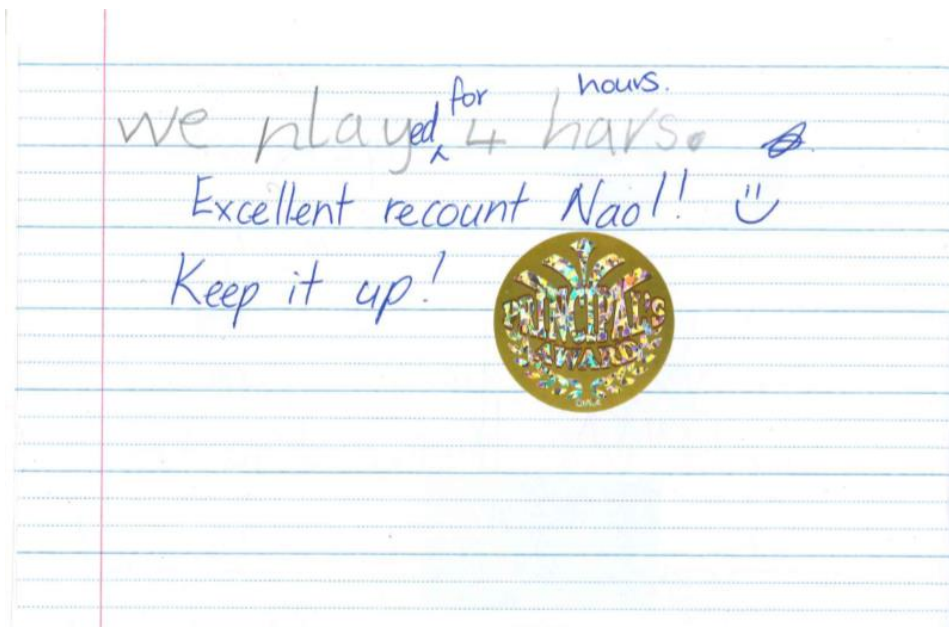 for hours.
we played 4 hars.
Excellent recount Naol!
Keep it up!
PRINCIPAL'S
AWARD